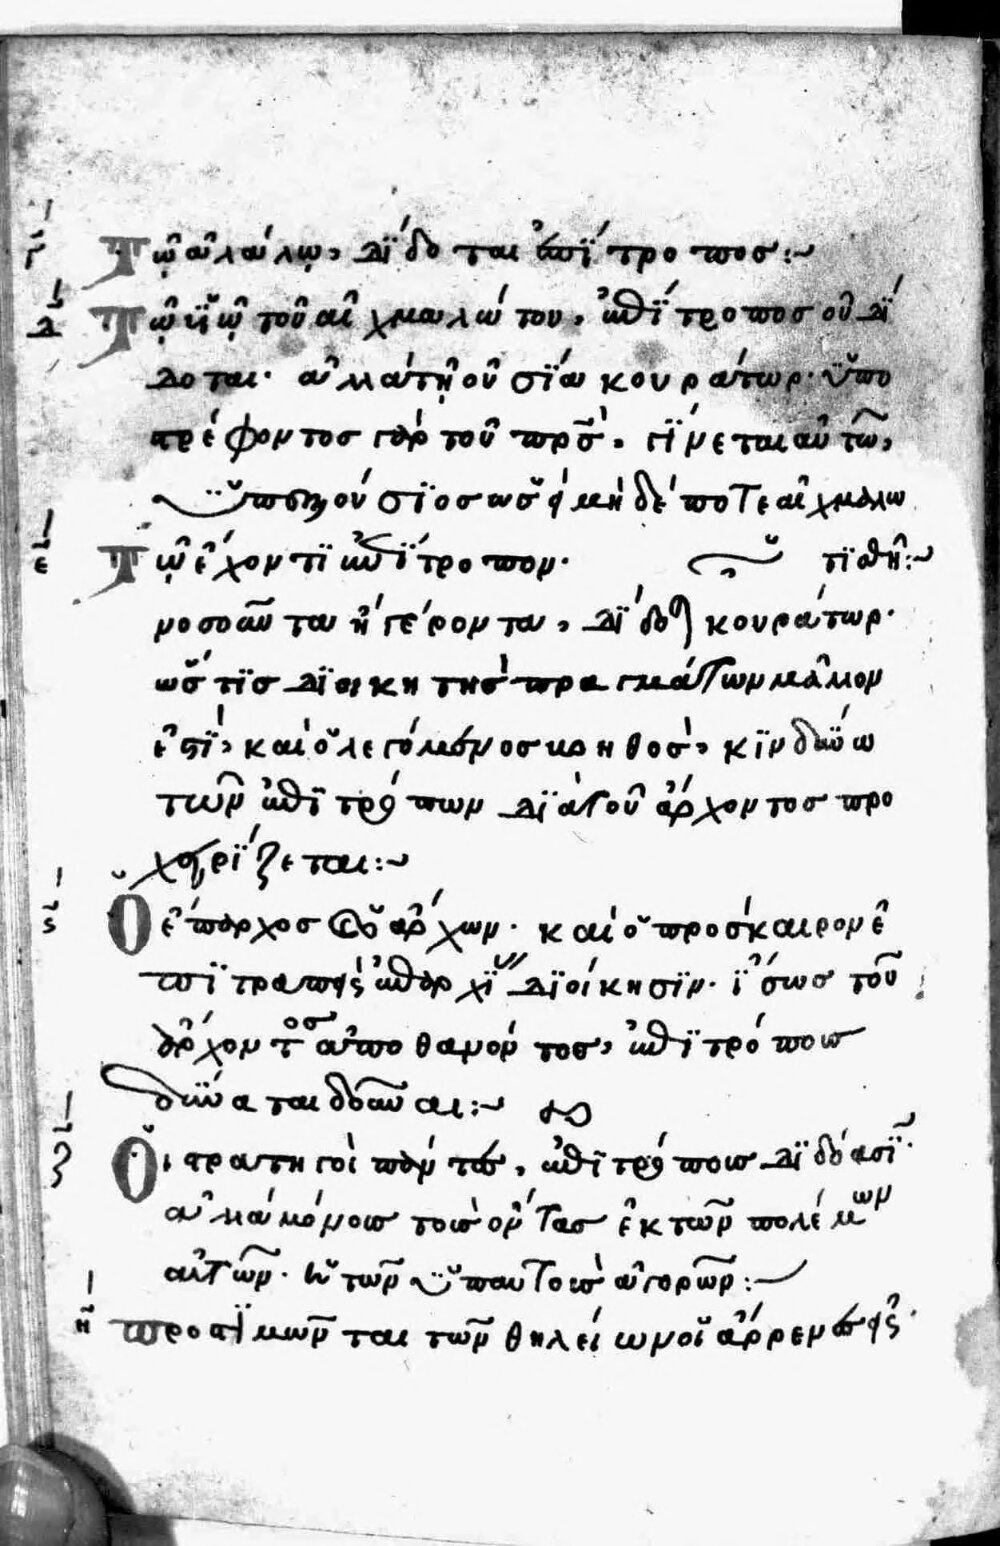 γ Τῷ ἀλάλῳ, δίδοται ἐπίτροπος:~
δ Τῷ υἱῷ τοῦ αἰχμαλώτου, ἐπίτροπος οὐ δί
δοται· ἀλλὰ τῇ οὐσίᾳ κουράτωρ· ὑπο
στρέφοντος γὰρ τοῦ πρς, γίνεται αὐτῶ,
ὑπεξούσιος ὡς εἰ μηδέποτε αἰχμαλω
ε Τῷ ἔχοντι ἐπίτροπον· τισθῆ:~
νοσοῦντα ἢ γέροντα, δίδοται κουράτωρ·
ὥς τις διοικητὴς πραγμάτων μᾶλλον
ἐστί, καὶ ὁ λεγόμενος βοηθός, κινδύνω
τῶν ἐπιτρόπων διὰ τοῦ ἄρχοντος προ
χειρίζεται:~
ς Ὁ ἔπαρχος καὶ ὁ ἄρχων· καὶ ὁ πρόσκαιρον ἐ
πιτραπεὶς ἐπαρχι διοίκησιν· ἴσως τοῦ
ἄρχοντος ἀποθανόντος, ἐπιτρόπους
δύναται δοῦναι:~
ζ Οἱ στρατηγοὶ πάντας, ἐπιτρόπους διδόασι·
ἀλλὰ μόνοις τοῖς οὖσιν ἐκ τῶν πολεμων
αὐτῶν· ἢ τῶν ὑπ' αὐτοῖς ἀγορῶν:~
η προτιμῶνται τῶν θηλειῶν οἱ ἄρρενες·